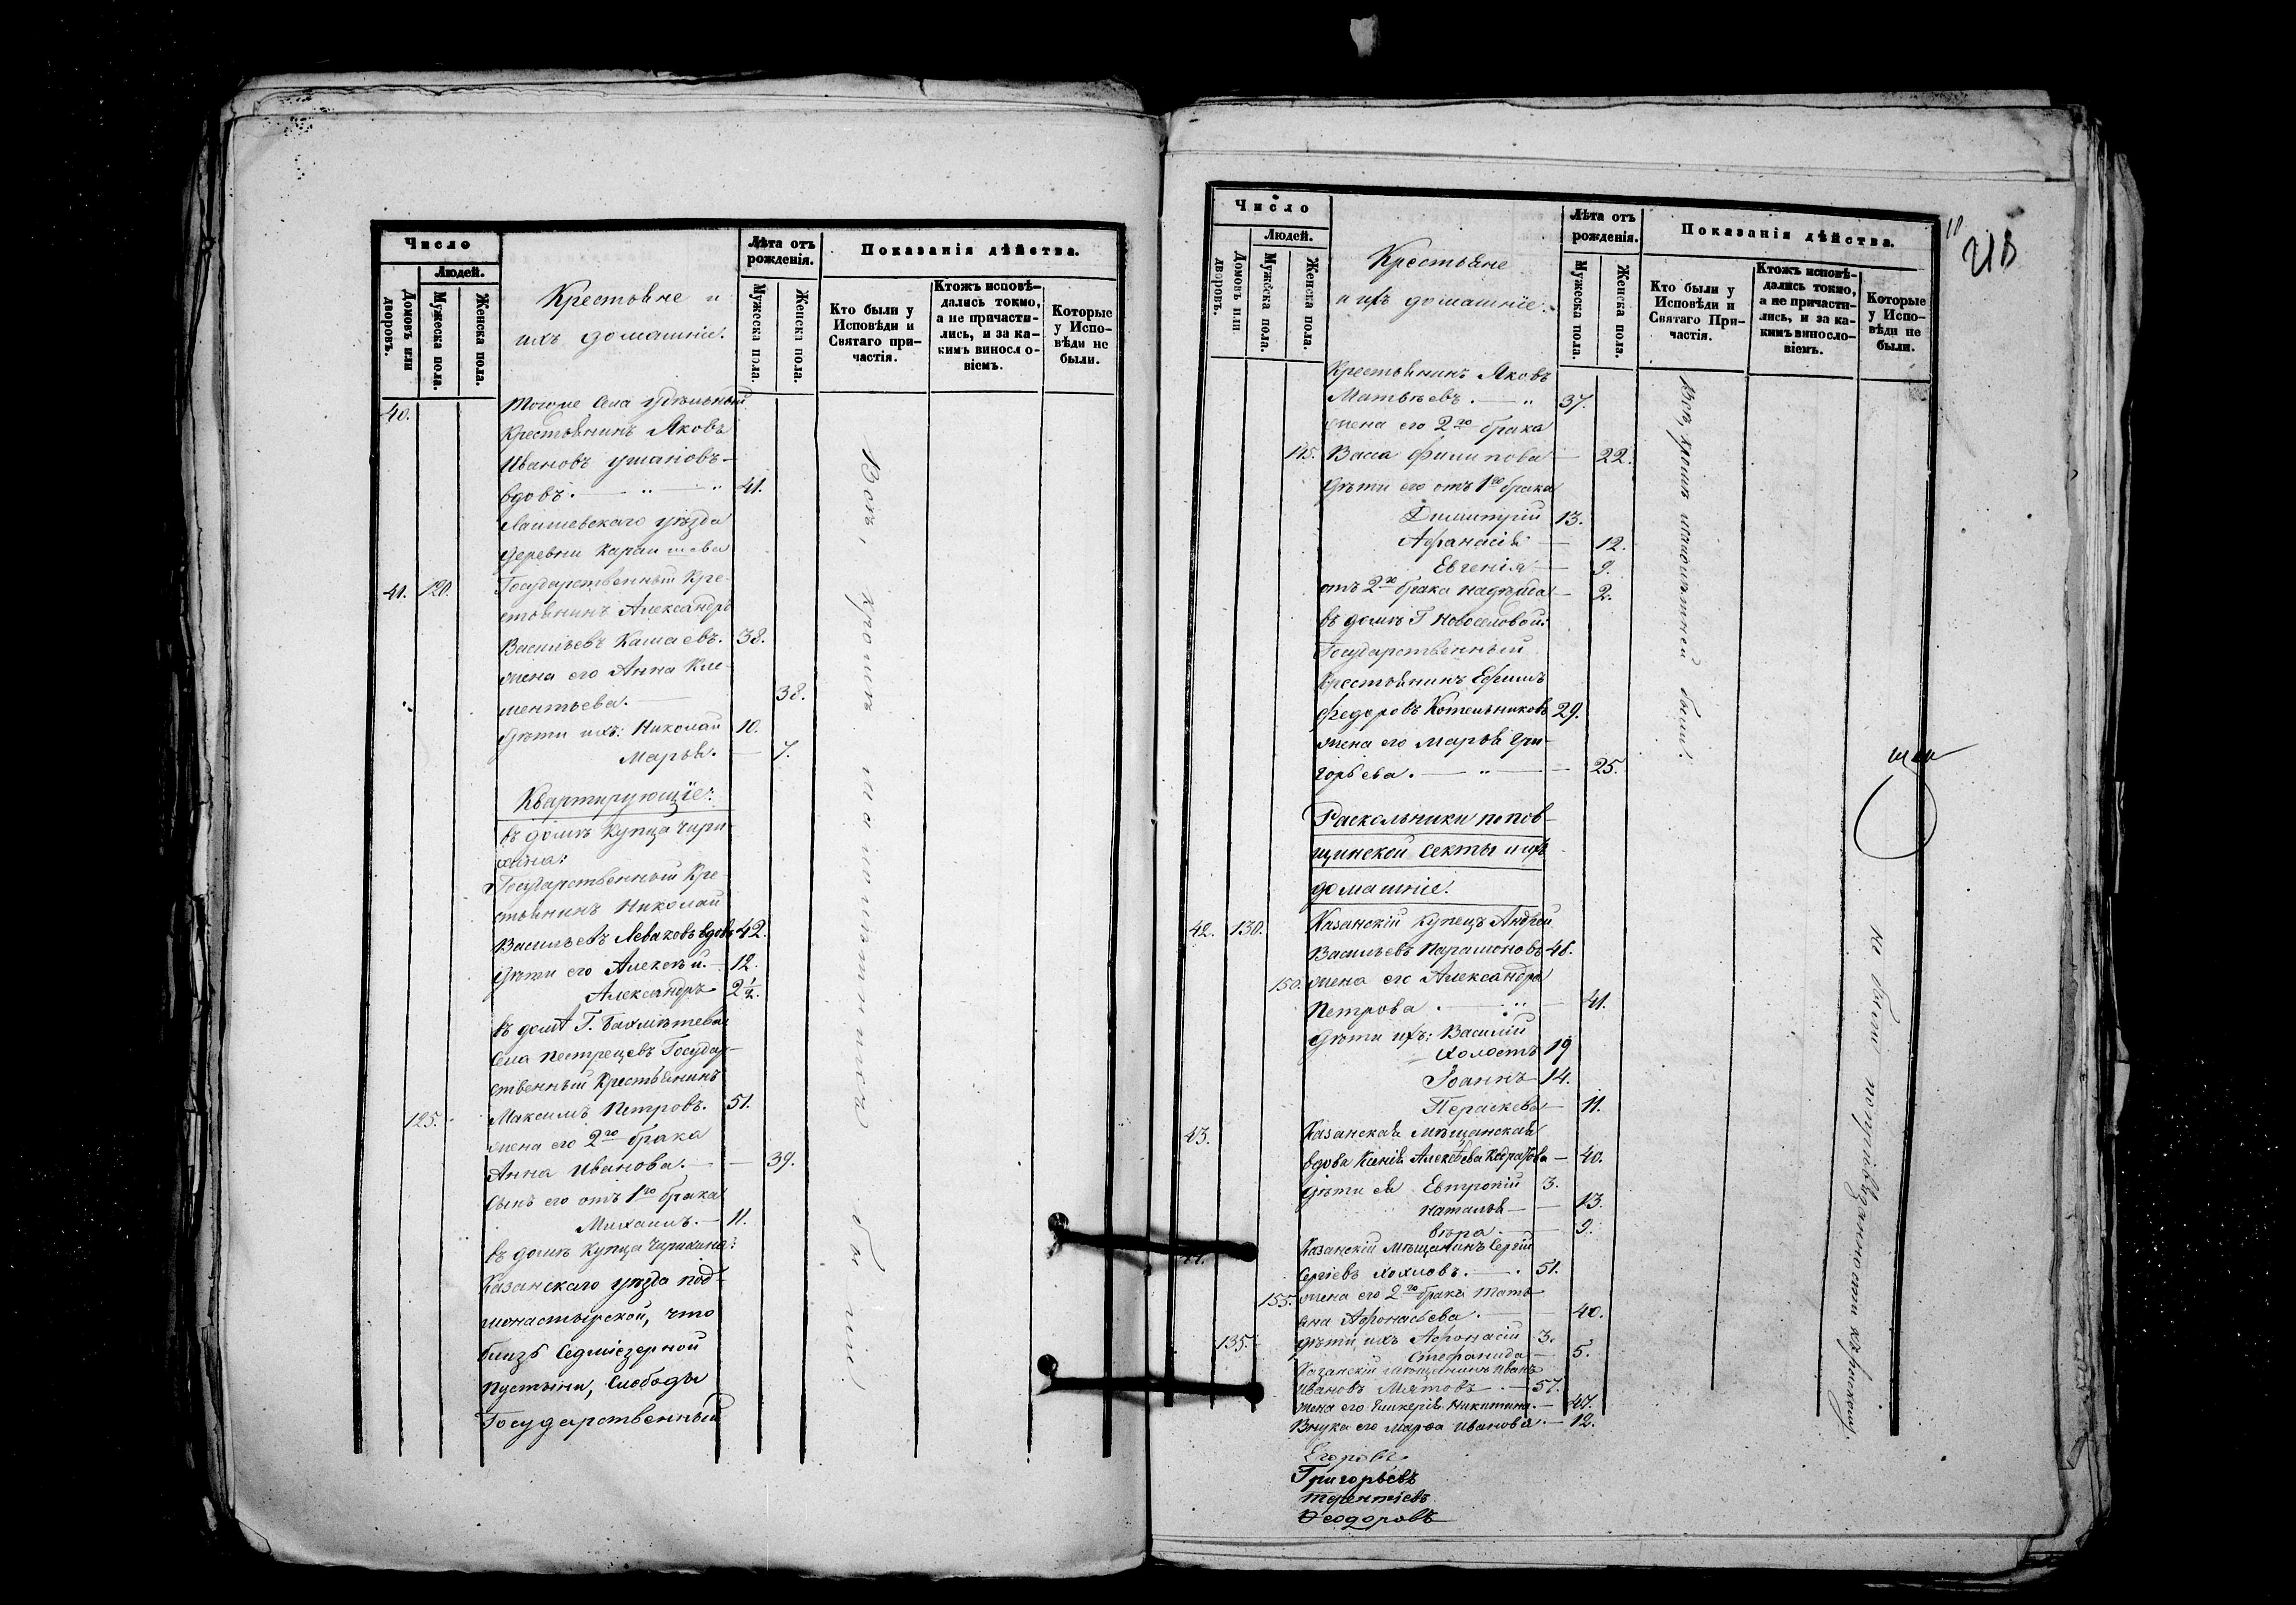 Число
Людей.
Домовъ или дворовъ.
Мужеска пола.
Женска пола.
Крестьяне и
ихъ домашніе.
Лѣта отъ рожденія.
Мужеска пола.
Женска пола.
Показанія дѣйства.
Кто были у Исповѣди и Святаго причастія.
Ктожъ исповѣдались токмо, а не причастились, и за какимъ винословіемъ.
Которые у Исповѣди не были.
40. Тогоже Села удѣльный
Крестьянинъ Яковъ
Ивановъ
вдовъ. — " — " 41.
Лаишевскаго уѣзда
деревни
41. 120. Государственный Кре-
стьянинъ Александръ
Васильевъ Камаевъ. 38.
жена его Анна Кли-
ментьева. — 38.
дѣти ихъ: Николай 10.
Марья. — 7.
Квартирующіе:
въ домѣ Купца Чари-
хина:
Государственный Кре-
стьянинъ Николай
Васильевъ Левановъ вдовъ 42.
дѣти его Алексѣй. — 12.
Александръ 2½.
въ домѣ Г. Бахмѣтева
Села Пестрецовъ Государ-
ственный Крестьянинъ
125. Максимъ Петровъ. 51.
жена его 2го брака
Анна Иванова. — 39.
Сынъ его отъ 1го брака
Михаилъ. — 11.
въ домѣ Купца Чарихина:
Казанскаго уѣзда под-
монастырской, что
близъ Седміезерной
Пустыни, Слободы
Государственный
Всѣ, кромѣ малолѣтнихъ были
Число
Людей.
Домовъ или дворовъ.
Мужеска пола.
Женска пола.
Крестьяне
и ихъ домашніе.
Лѣта отъ рожденія.
Мужеска пола.
Женска пола.
Показанія дѣйства.
Кто были у Исповѣди и Святаго Причастія.
Ктожъ исповѣдались токмо, а не причастились, и за какимъ винословіемъ.
Которые у Исповѣди не были.
Крестьянинъ Яковъ
Матвѣевъ. — " 37.
жена его 2го брака
145. Васса Филипова — 22.
дѣти его отъ 1го брака
Димитрій 13.
Афанасія — 12.
Евгенія — 9.
отъ 2го брака Надѣжда — 2.
въ домѣ Г Новоселовой:
Государственный
Крестьянинъ Ефимъ
Федоровъ Котельниковъ 29.
жена его Марья Гри-
горьева. — " — 25.
Раскольники попов-
щинской секты и ихъ
домашніе.
42. 130. Казанскій Купецъ Андрей
Васильевъ Парамоновъ 48.
150. жена его Александра
Петрова — " — 41.
дѣти ихъ: Василій
холостъ 19
Іоаннъ 14.
Параскева — 11.
43. Казанская Мѣщанская
вдова Ксенія Алексѣева — 40.
дѣти ея Евтропій 3.
Наталья — 13.
Вѣра. — 9.
44. Казанскій Мѣщанинъ Сергій
Сергіевъ Хохловъ. — 51.
155. жена его 2го брака Тать-
яна Афонасьева. — 40.
135. дѣти ихъ Афонасій 3.
Стефанида — 5.
Казанскій мѣщанинъ Иванъ
Ивановъ Мятовъ — 57.
жена его Гликерія Никитина. — 47.
Внука его Марѳа Иванова — 12.
Егоровъ
Григорьевъ
Терентіевъ
Ѳеодоровъ
Всѣ, кромѣ малолѣтней были.
не были по